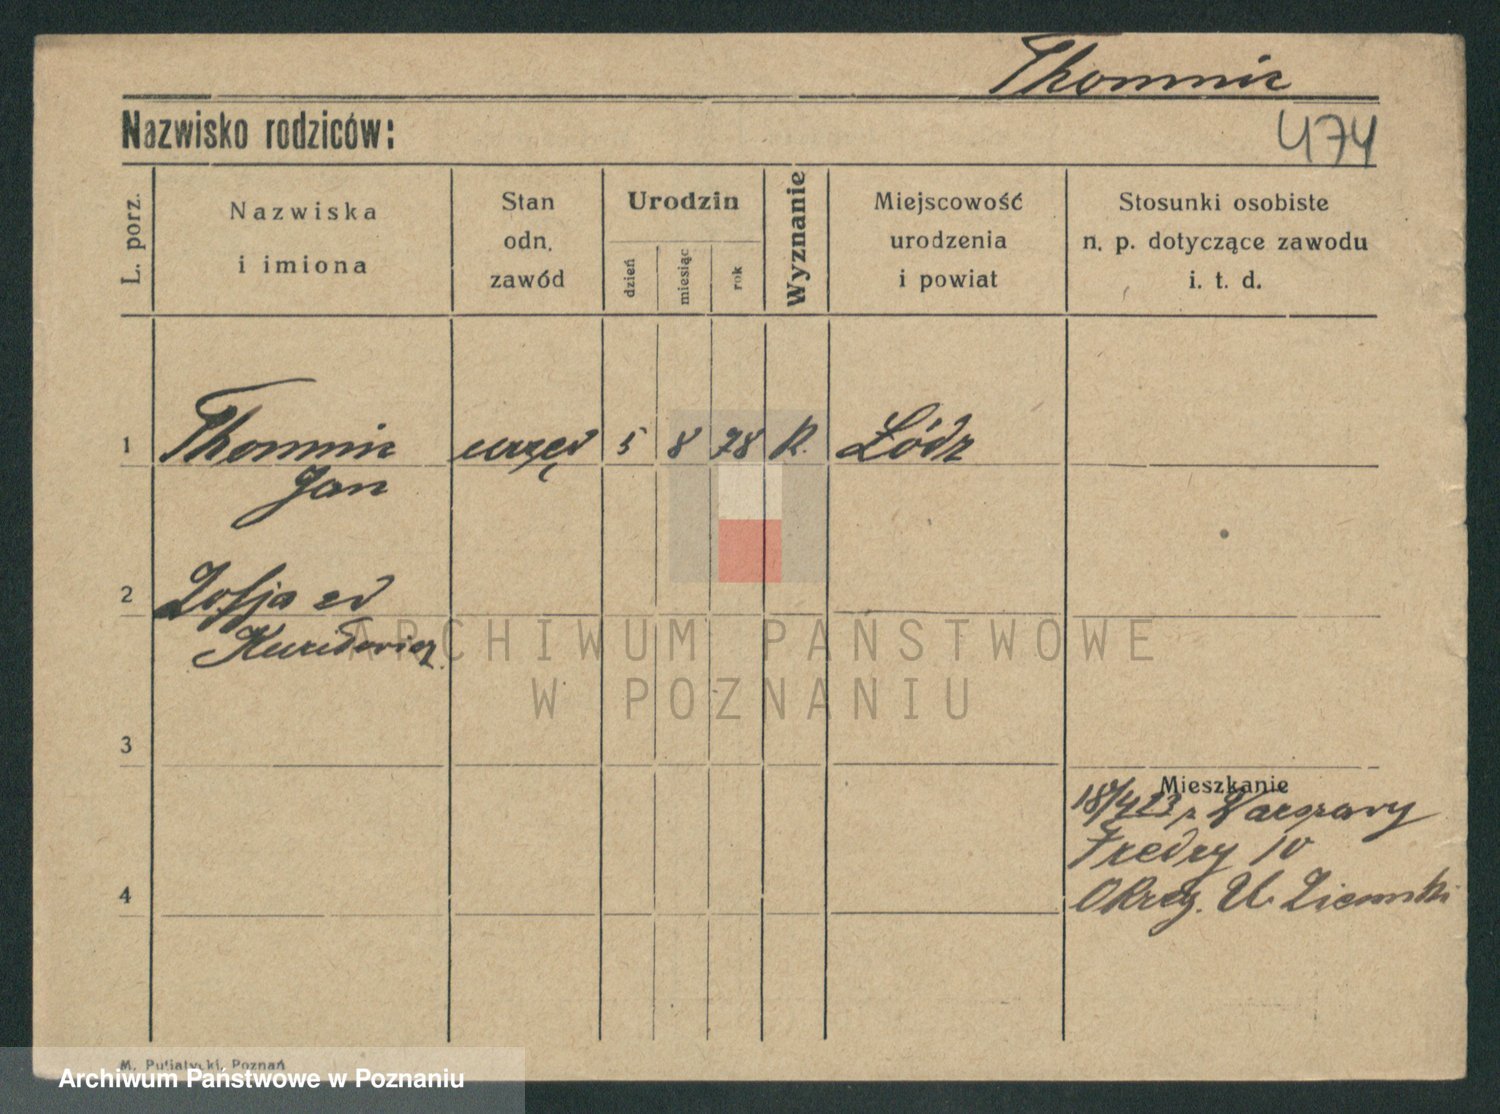 Thomnic
Nazwisko rodziców:
474
L. porz.
Nazwiska
i imiona
Stan
odn.
zawód
Urodzin
dzień
miesiąc
rok
Wyznanie
Miejscowość
urodzenia
i powiat
Stosunki osobiste
n. p. dotyczące zawodu
i. t. d.
1
Thomnic
Jan
urzęd
5
8
78
R.
Łódz
2
Zofja zd
3
Mieszkanie
18/4 23 z Warszawy
Fredry 10
Okręg. U. Ziemski
4
ARCHIWUM PAŃSTWOWE
W POZNANIU
M. Putiatycki, Poznań
Archiwum Państwowe w Poznaniu